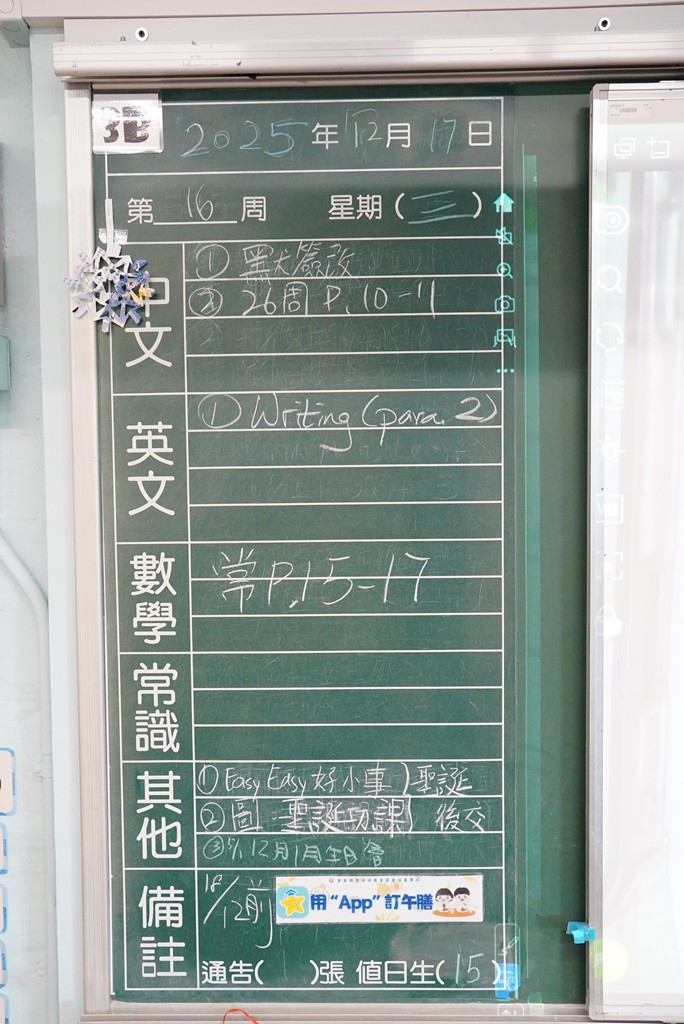 3B
2025年12月17日
第 16 周 星期(三)
中文
① 黑犬簽改
② 26周 P.10-11
英文
① Writing (para. 2)
數學
常P.15-17
常識
其他
① Easy Easy 好小事 } 聖誕
② 圖 聖誕功課 後交
備註
用“App”訂午膳
通告( 1 )張 值日生( 15 )